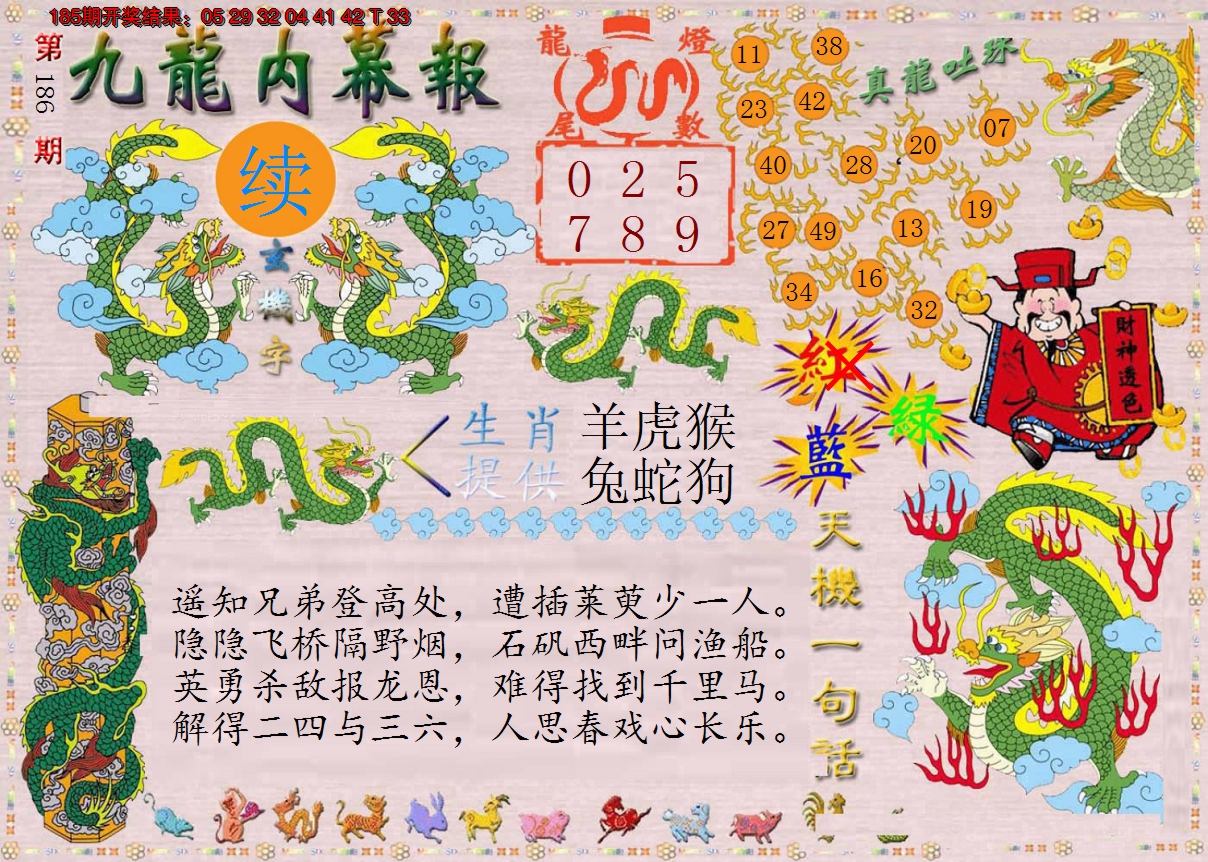 185期开奖结果：05 29 32 04 41 42 T 33
第186期
九龍内幕報
续
玄機字
龍燈
尾數
0 2 5
7 8 9
11 38
23 42
40 28 20 07
27 49 13 19
34 16 32
真龍吐珠
財神透色
紅
绿
藍
生肖提供
羊虎猴
兔蛇狗
天機一句話
遥知兄弟登高处，遭插莱萸少一人。
隐隐飞桥隔野烟，石矶西畔问渔船。
英勇杀敌报龙恩，难得找到千里马。
解得二四与三六，人思春戏心长乐。